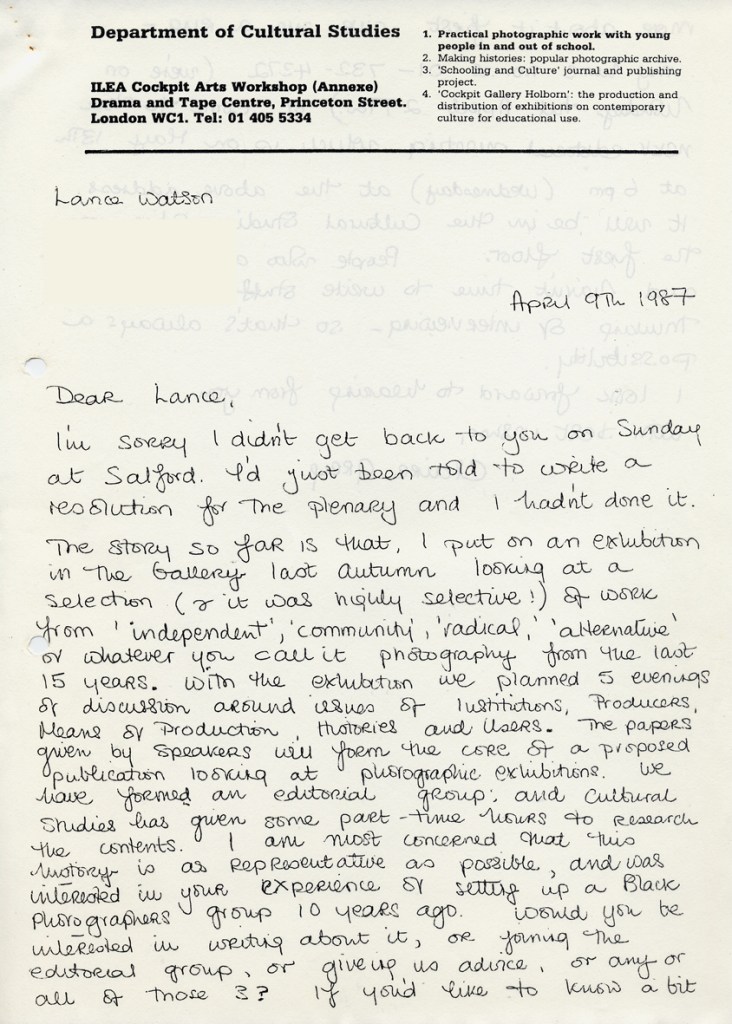 Department of Cultural Studies
ILEA Cockpit Arts Workshop (Annexe)
Drama and Tape Centre, Princeton Street.
London WC1. Tel: 01 405 5334
1. Practical photographic work with young
people in and out of school.
2. Making histories: popular photographic archive.
3. 'Schooling and Culture' journal and publishing
project.
4. 'Cockpit Gallery Holborn': the production and
distribution of exhibitions on contemporary
culture for educational use.
Lance Watson
April 9th 1987
Dear Lance,
I'm sorry I didn't get back to you on Sunday
at Salford. I'd just been told to write a
resolution for the plenary and I hadn't done it.
The story so far is that, I put on an exhibition
in the Gallery last autumn looking at a
selection (& it was highly selective!) of work
from 'independent', 'community', 'radical,' 'alternative'
or whatever you call it photography from the last
15 years. With the exhibition we planned 5 evenings
of discussion around issues of Institutions, Producers,
Means of Production, Histories and Users. The papers
given by speakers will form the core of a proposed
publication looking at photographic exhibitions. We
have formed an editorial group; and Cultural
Studies has given some part-time hours to research
the contents. I am most concerned that this
history is as representative as possible, and was
interested in your experience of setting up a Black
photographers group 10 years ago. Would you be
interested in writing about it, or joining the
editorial group, or giving us advice, or any or
all of those 3? If you'd like to know a bit